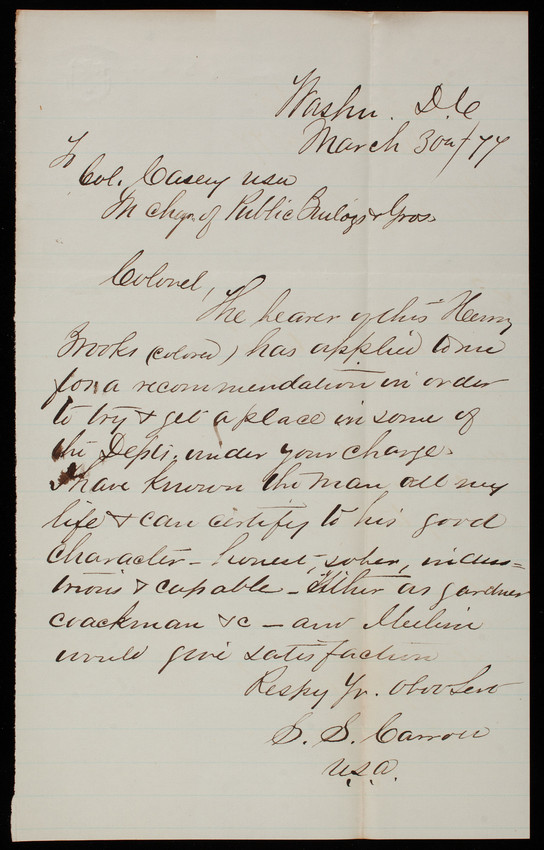 Washn. D.C
March 30th/77
To
Col. Casey USA
In chge. of Public Buildgs & Grds
Colonel,
The bearer of this Henry
Brooks (colored) has applied to me
for a recommendation in order
to try & get a place in some of
the Depts. under your charge.
I have known the man all my
life & can certify to his good
character - honest, sober, indus=
trious & capable - Either as gardner
coachman &c - and
would give satisfaction
Respy Yr. Obdt Servt
S. S. Carroll
U.S.A.